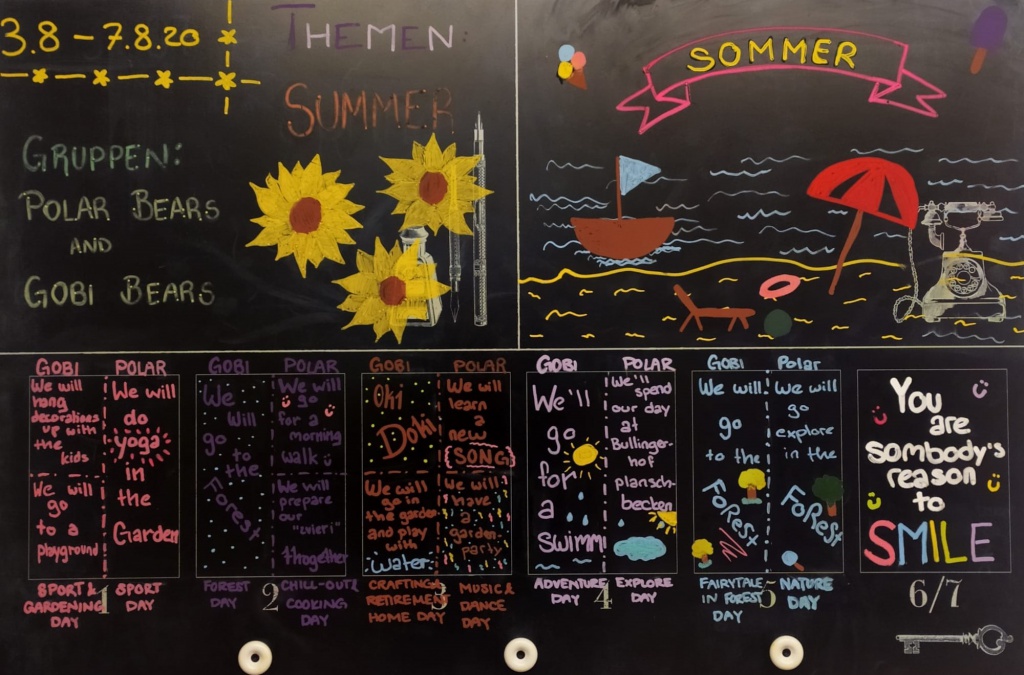 3.8 - 7.8.20
THEMEN:
SUMMER
GRUPPEN:
POLAR BEARS
AND
GOBI BEARS
SOMMER
GOBI
We will
hang
decorations
up with
the
kids
We will
go
to a
playground
SPORT &
GARDENING
DAY
POLAR
We will
do
yoga
in
the
Garden
SPORT
DAY
1
GOBI
We
will
go
to
the
Forest
FOREST
DAY
POLAR
We will
go
for a
morning
walk
We will
prepare
our
"zvieri"
thogether
CHILL-OUT &
COOKING
DAY
2
GOBI
Oki
Doki
We will
go in
the garden
and play
with
water.
CRAFTING &
RETIREMENT
HOME DAY
POLAR
We will
learn
a
new
SONG
We will
have
a
garden-
party
MUSIC &
DANCE
DAY
3
GOBI
We'll
go
for
a
Swimm
ADVENTURE
DAY
POLAR
We'll
spend
our day
at
Bullinger-
hof
plansch-
becken
EXPLORE
DAY
4
GOBI
We will
go
to the
Forest
FAIRYTALE
IN FOREST
DAY
Polar
We will
go
explore
in the
Forest
NATURE
DAY
5
You
are
sombody's
reason
to
SMILE
6/7